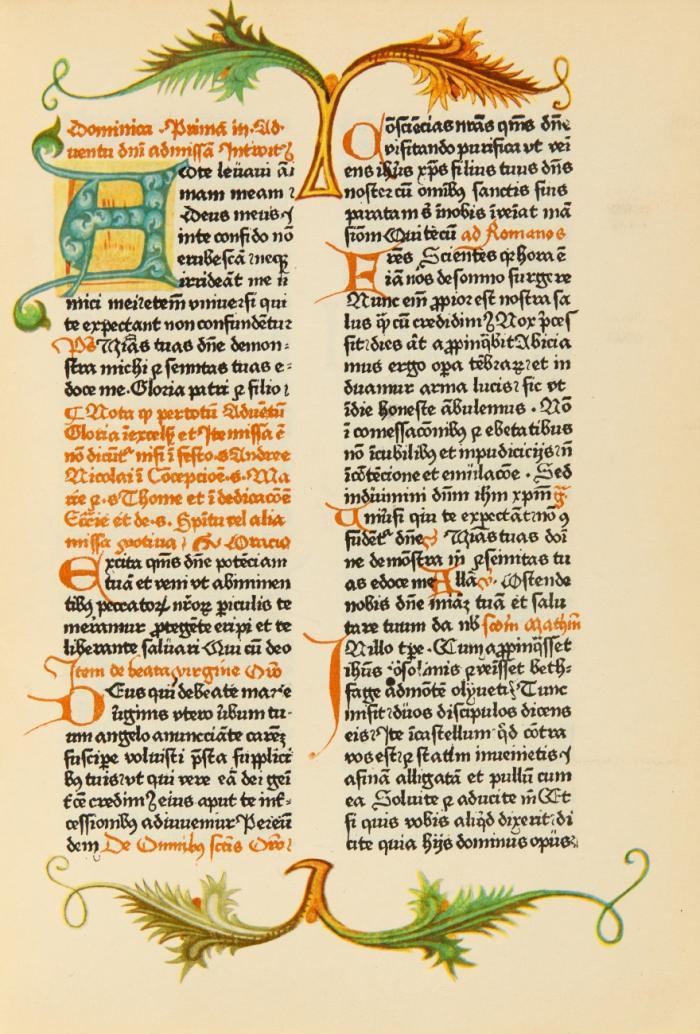 Dominica . Prima in . Ad-
ventu dñi ad missã Introitꝰ
Ad te leuaui aĩ
mam meam ⁊
Deus meus ⁊
in te confido nõ
erubescã : neqꝫ
irrideãt me ĩi
mici mei : etem̃ vniuersi qui
te expectant non confundẽtur
Pš Uias tuas dñe demon :
stra michi ⁊ semitas tuas e-
doce me . Gloria patri ⁊ filio ⁊
¶ Nota ꝙ per totũ Aduẽtũ
Gloria ĩ excelš et Ite missa ẽ
nõ dicũtᷣ nisi ĩ festo . s Andree
Nicolai ĩ Cõcepcioñe . s . Ma
rie ⁊ . s Thome et ĩ dedicacõe
Eccĩe et de . s . Spĩtu vel alia
missa votiua Oracio
Excita qm̃s dñe potẽciam
tuã et veni vt ab iminen
tibꝰ peccatoꝝ nr̃oꝝ periculis te
mereamur ꝓtegẽte eripi et te
liberante saluari Qui cũ deo
Item de beata virgine Oro
Deus qui de beate marie
ũginis vtero ũbum tu-
um angelo annunciãte carnẽ
suscipe voluisti p̃sta supplici
bꝰ tuis : vt qui vere eã dei geñ
tcẽ credimꝰ eius aput te int-
cessionibꝰ adiuuemur Per eũ
dem De Omnibꝰ sctĩs Oro
Cõsciẽcias nrãs qm̃s dñe
visitando purifica vt vei
ens ihũs xp̃s filius tuus dñs
noster cũ omĩbꝰ sanctis suis
paratam š ĩ nobis ĩueiat mã
siõm Qui tecũ ad Romanos
Frẽs Scientes qꝛ hora ẽ
iã nõs de somno surgere
Nunc em̃ ꝓpior est nostra sa
lus ꝙ cũ credidimꝰ Nox p̃ces
sit : dies ãt appinq̃bit Abicia
mus ergo oꝑa tẽbraꝝ : et in
duamur arma lucis : sic vt
ĩ die honeste ãbulemus . Nõ
ĩ comessacõnibꝰ ⁊ ebetatibus
nõ ĩ cubilibꝰ et impudicicijs : ñ
ĩ cõtẽcione et emulacõe . Sed
induimini dñm ihm xpm̃ g̃
Uniũsi qui te expectãt nõ ꝯ
fũdẽtᷣ dñe Uias tuas doĩ
ne demõstra m̃ ⁊ semitas tu
as edoce me Alla v . Ostende
nobis dñe miãꝫ tuã et salu
tare tuum da nob̃ scd̃m Mathm̃
In illo tp̃e . Cum appinq̃sset
ihũs ihosolmis ⁊ vẽisset beth-
fage ad mõtẽ olyueti : Tunc
misit duos discipulos dicens
eis : Ite ĩ castellum qd̃ cõtra
vos est : ⁊ statĩm inuenietis
asinã alligatã et pullũ cum
ea Soluite ⁊ aducite m̃ Et
si quis vobis aliqd̃ dixerit : di
cite quia hijs dominus opus